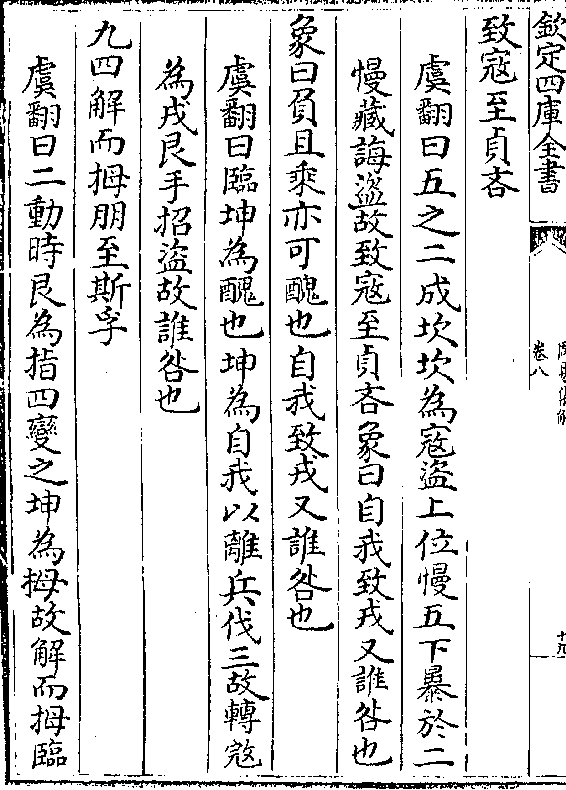 欽定四庫全書
卷八
致寇至貞吝
虞翻曰五之二成坎坎為寇盜上位慢五下暴於二
慢藏誨盜故致寇至貞吝象曰自我致戎又誰咎也
象曰負且乘亦可醜也自我致戎又誰咎也
虞翻曰臨坤為醜也坤為自我以離兵伐三故轉寇
為戎艮手招盜故誰咎也
九四解而拇朋至斯孚
虞翻曰二動時艮為指四變之坤為拇故解而拇臨